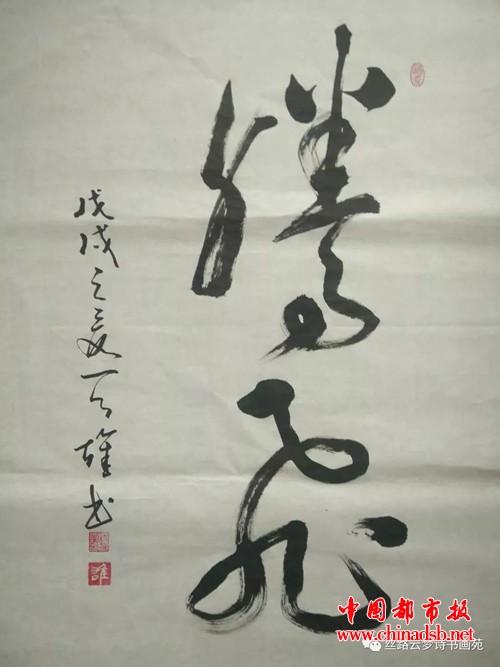 腾飞
戊戌之夏天雄书
雄
中國都市报
www.chinadsb.net
丝路云梦诗书画苑